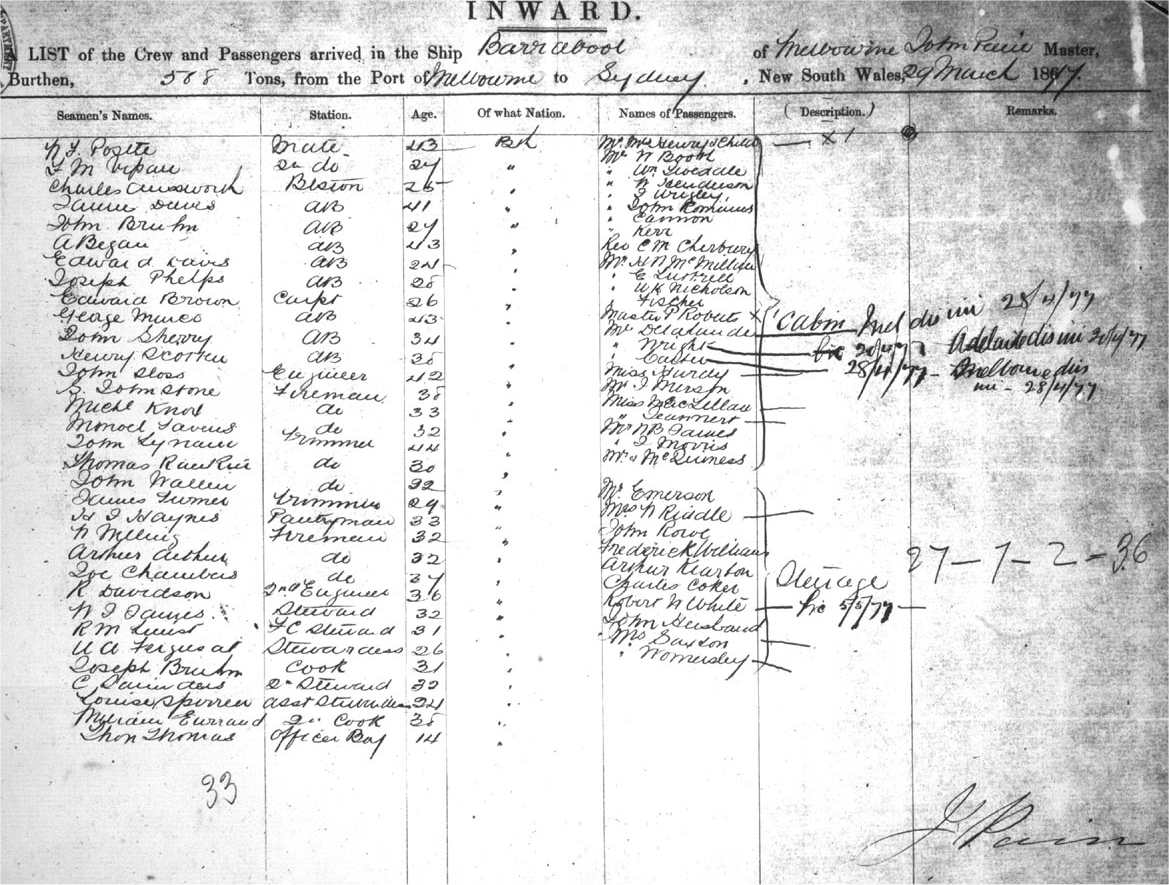 INWARD.
LIST of the Crew and Passengers arrived in the Ship Barrabool of Melbourne John Master,
Burthen, 568 Tons, from the Port of Melbourne to Sydney, New South Wales, 29 March 1877.
Seamen's Names. Station. Age. Of what Nation. Names of Passengers. (Description.) Remarks.
Mate 43 Bsh Mr Mrs Henry & Child — x 1
M 2n do 27 " Mr W Booth
Charles Ainsworth 26 " " Wm Tweedale
" W Henderson
James Davis AB 41 " " J Wrigley
John Bruhn AB 27 " " John
" Cannon
A Began AB 43 " " Kerr
Edward Davis AB 24 " Rev C M
Joseph Phelps AB 28 " Mr H N McMillan
" E
Edward Brown Carpt 26 " " W K Nicholson
" Fischer
George AB 43 " Master P Roberts x Cabin 28/4/77
John Sherry AB 34 " Mr Delalande
Henry AB 35 " " Wright 20/4/77 Adelaide 20/4/77
John Sloss Engineer 42 " " 28/4/77 – Melbourne
Miss Hurdy – 28/4/77
S Johnstone Fireman 38 " Mr J
Michl Knox do 33 " Miss McLellan
"
do 32 " Mr W B James
John Trimmer 44 " " J Morris
Thomas Rankin do 30 " Mrs McGuiness
John Wallin do 32 "
James Turner Trimmer 29 " Mr Emerson
H J Haynes Pantryman 33 " Mrs W Riddle
W Fireman 32 " John Rowe
Arthur Arthur do 32 " Frederick Williams 27 – 7 – 2 – 36
Joe Chambers do 37 " Arthur Kearton
R Davidson 2nd Engineer 36 " Charles Coker Steerage
W J James Steward 32 " Robert W White 5/5/77
R M FC Steward 31 " John Husband
Stewardess 26 " Mrs Saxton
Joseph Bruhm Cook 31 " " Womersley
C Saunders 2n Steward 32 "
Louise asst Stewardess 24 "
2n Cook 35 "
Thomas Officer Boy 14 "
33
J Pain